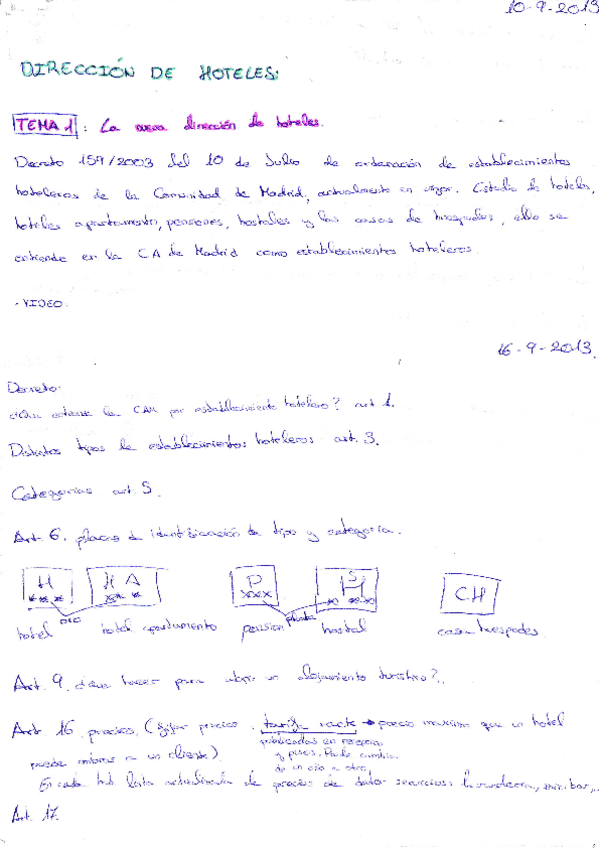 10-9-2013
DIRECCIÓN DE HOTELES:
TEMA 1: La nueva dirección de hoteles.
Decreto 159/2003 del 10 de Julio de ordenación de establecimientos
hoteleros de la Comunidad de Madrid, actualmente en vigor. Estudia de hoteles,
hoteles apartamento, pensiones, hostales y las casas de huéspedes, ello se
entiende en la CA de Madrid como establecimientos hoteleros.
- VIDEO.
16-9-2013.
Decreto.
¿Que entiende la CAM por establecimiento hotelero? art 1.
Distintos tipos de establecimientos hoteleros art. 3.
Categorias art. 5.
Art. 6. placas de identificación de tipo y categoria.
H HA P HS CH
hotel oro hotel apartamento pension plata hostal casa huespedes.
Art. 9. ¿que hacer para abrir un alojamiento turistico?.
Art 16. precios. (fijar precios. tarifa rack → precio maximo que un hotel
puede cobrar a un cliente). publicadas en recepcion
y pisos. Puede cambiar
de un año a otro.
En cada hab. lista actualizada de precios de todos servicios: lavanderia, minibar,..
Art. 17.